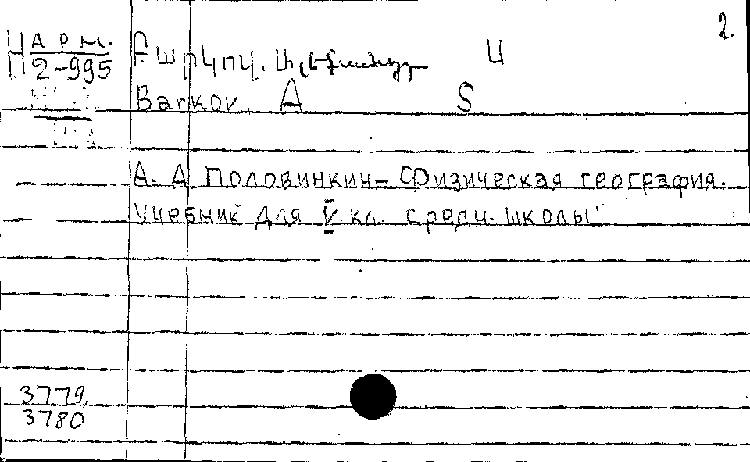 2.
Н А Р М.
П 2-995
Բարկով. Ալեքսանդր Ս
Barkov. A S
А. А Половинкин - Физическая география.
Учебник для V кл. средн. школы
3779
3780